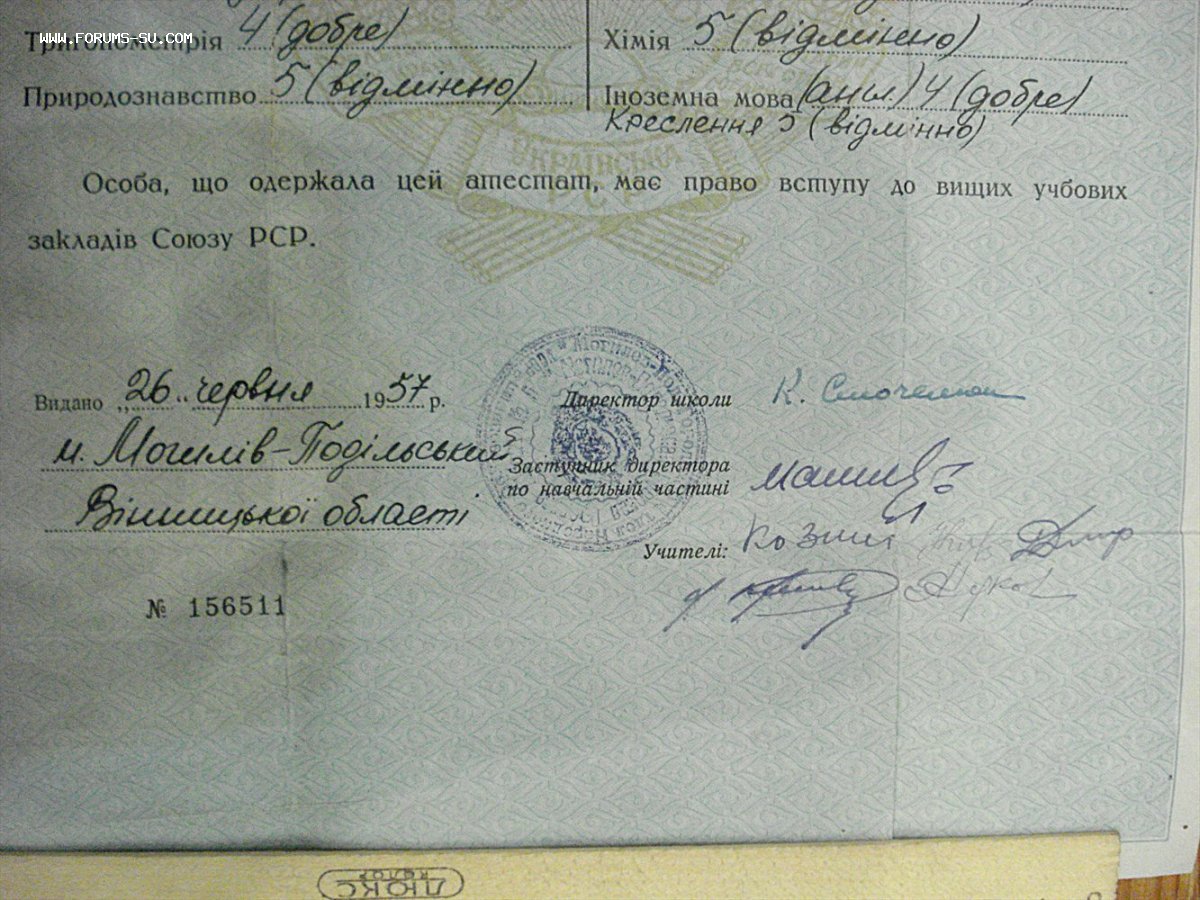 www.forums-su.com
Тригонометрія 4 (добре)
Природознавство 5 (відмінно)
Хімія 5 (відмінно)
Іноземна мова (англ.) 4 (добре)
Креслення 5 (відмінно)
УКРАЇНСЬКА
РСР
Особа, що одержала цей атестат, має право вступу до вищих учбових
закладів Союзу РСР.
Видано „26" червня 1957 р.
м. Могилів-Подільський
Вінницької області
№ 156511
Директор школи
Заступник директора
по навчальній частині
Учителі: Козний
ЛЮКС
колор